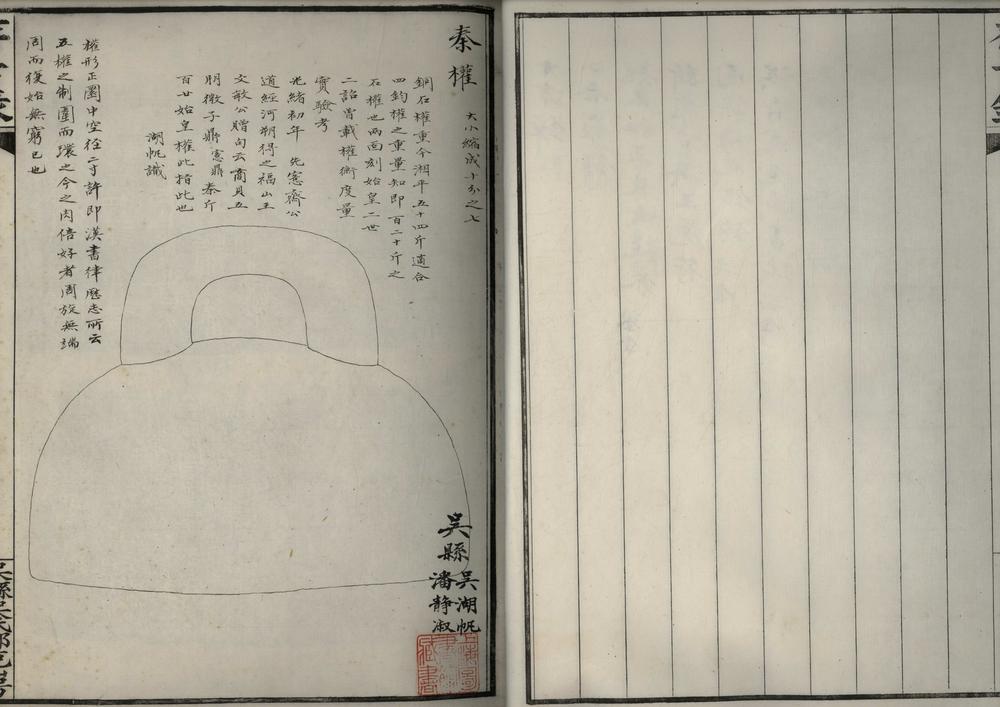 秦權
大小縮成十分之七
銅石權重今湘平五十四斤適合
四鈞權之重量知即百二十斤之
石權也兩面刻始皇二世
二詔曾載權衡度量
實驗考
光緒初年　先愙齋公
道經河朔得之福山王
文敏公贈句云商貝五
朋微子鼎愙鼎秦斤
百廿始皇權此指此也
湖帆識
權形正圜中空徑二寸許即漢書律歷志所云
五權之制圜而環之令之肉倍好者周旋無端
周而復始無窮已也
吳縣
吳湖帆
潘靜淑